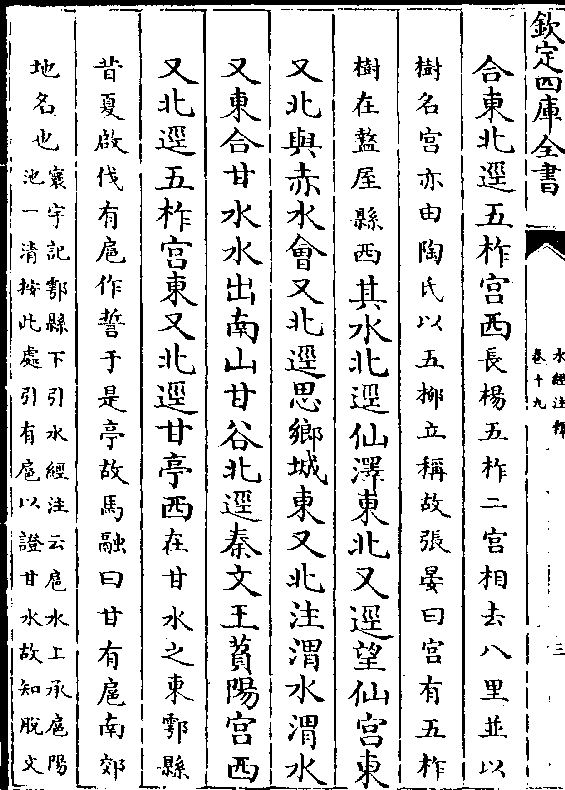 欽定四庫全書
水經注釋
卷十九
三
合東北逕五柞宫西長楊五柞二宫相去八里並以
樹名宫亦由陶氏以五栁立稱故張晏曰宫有五柞
樹在盩厔縣西其水北逕仙澤東北又逕望仙宫東
又北與赤水會又北逕思鄉城東又北注渭水渭水
又東合甘水水出南山甘谷北逕秦文王萯陽宫西
又北逕五柞宫東又北逕甘亭西在甘水之東鄠縣
昔夏啟伐有扈作誓于是亭故馬融曰甘有扈南郊
地名也寰宇記鄠縣下引水經注云扈水上承扈陽
池一清按此處引有扈以證甘水故知脱文